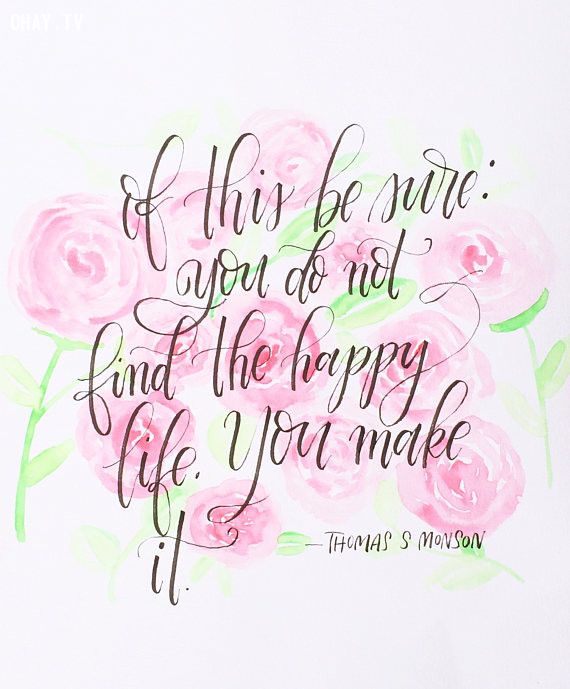 OHAY.TV
of this be sure:
you do not
find the happy
life. You make
it.
—THOMAS S MONSON